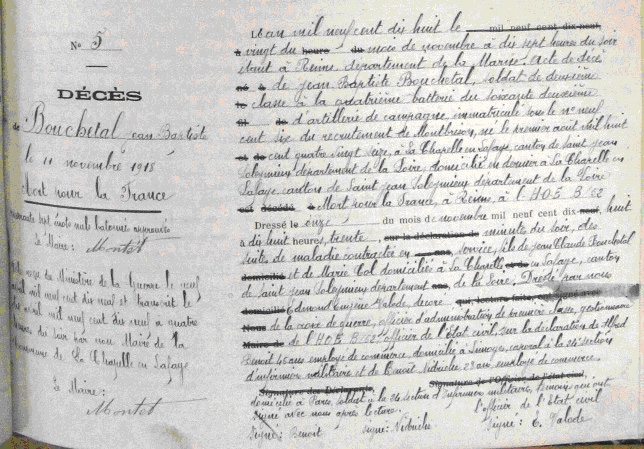 N° 5
DÉCÈS
de Bouchetal Jean Baptiste
le 11 novembre 1918
Mort pour la France
sept mots nuls
Le Maire: Montet
du Ministère de la Guerre le neuf
avril mil neuf cent dix neuf et transcrit le
avril mil neuf cent dix neuf à quatre
heures du soir par nous Maire de la
commune de La Chapelle en Lafaye
Le Maire:
Montet
L'an mil neuf cent dix huit le mil neuf cent dix-neuf,
à vingt du heure du mois de novembre à dix sept heures du soir
à Reims, département de la Marne. Acte de décès
de Jean Baptiste Bouchetal, soldat de deuxième
classe à la batterie du soixante deuxième
d'artillerie de campagne, immatriculé sous le n° neuf
cent six du recrutement de Montbrison, né le premier août mil huit
cent quatre vingt seize, à La Chapelle en Lafaye, canton de Saint Jean
Soleymieu département de la Loire, domicilié en dernier à La Chapelle en
Lafaye, canton de Saint Jean Soleymieu département de la Loire
est décédé Mort pour la France, à Reims, à l'H.O.E. B 62
Dressé le onze du mois de novembre mil neuf cent dix neuf, huit
à dix huit heures, trente, sur la déclaration de minutes du soir, des
suites de maladie contractée en service, fils de Jean Claude Bouchetal
domicilié et de Marie Col domiciliés à La Chapelle en Lafaye, canton
de Saint Jean Soleymieu département de la Loire. Dressé par nous
domicilié Edmond Eugène Valode, décoré qui, lecture faite,
Nous de la croix de guerre, officier d'administration de première classe, gestionnaire
Maire de de l'H.O.E. B 62 officier de l'Etat civil, sur la déclaration de
Benoit employé de commerce, domicilié à Limoges, caporal à la 24e section
d'infirmiers militaires et de employé de commerce.
Signature des Déclarants, Signature de l'Officier de l'état civil,
domicilié à Paris, soldat à la 24 section d'infirmiers militaires, témoins qui ont
signé avec nous après lecture. l'officier de l'Etat civil
Signé: Benoit Signé: Signé: E. Valode